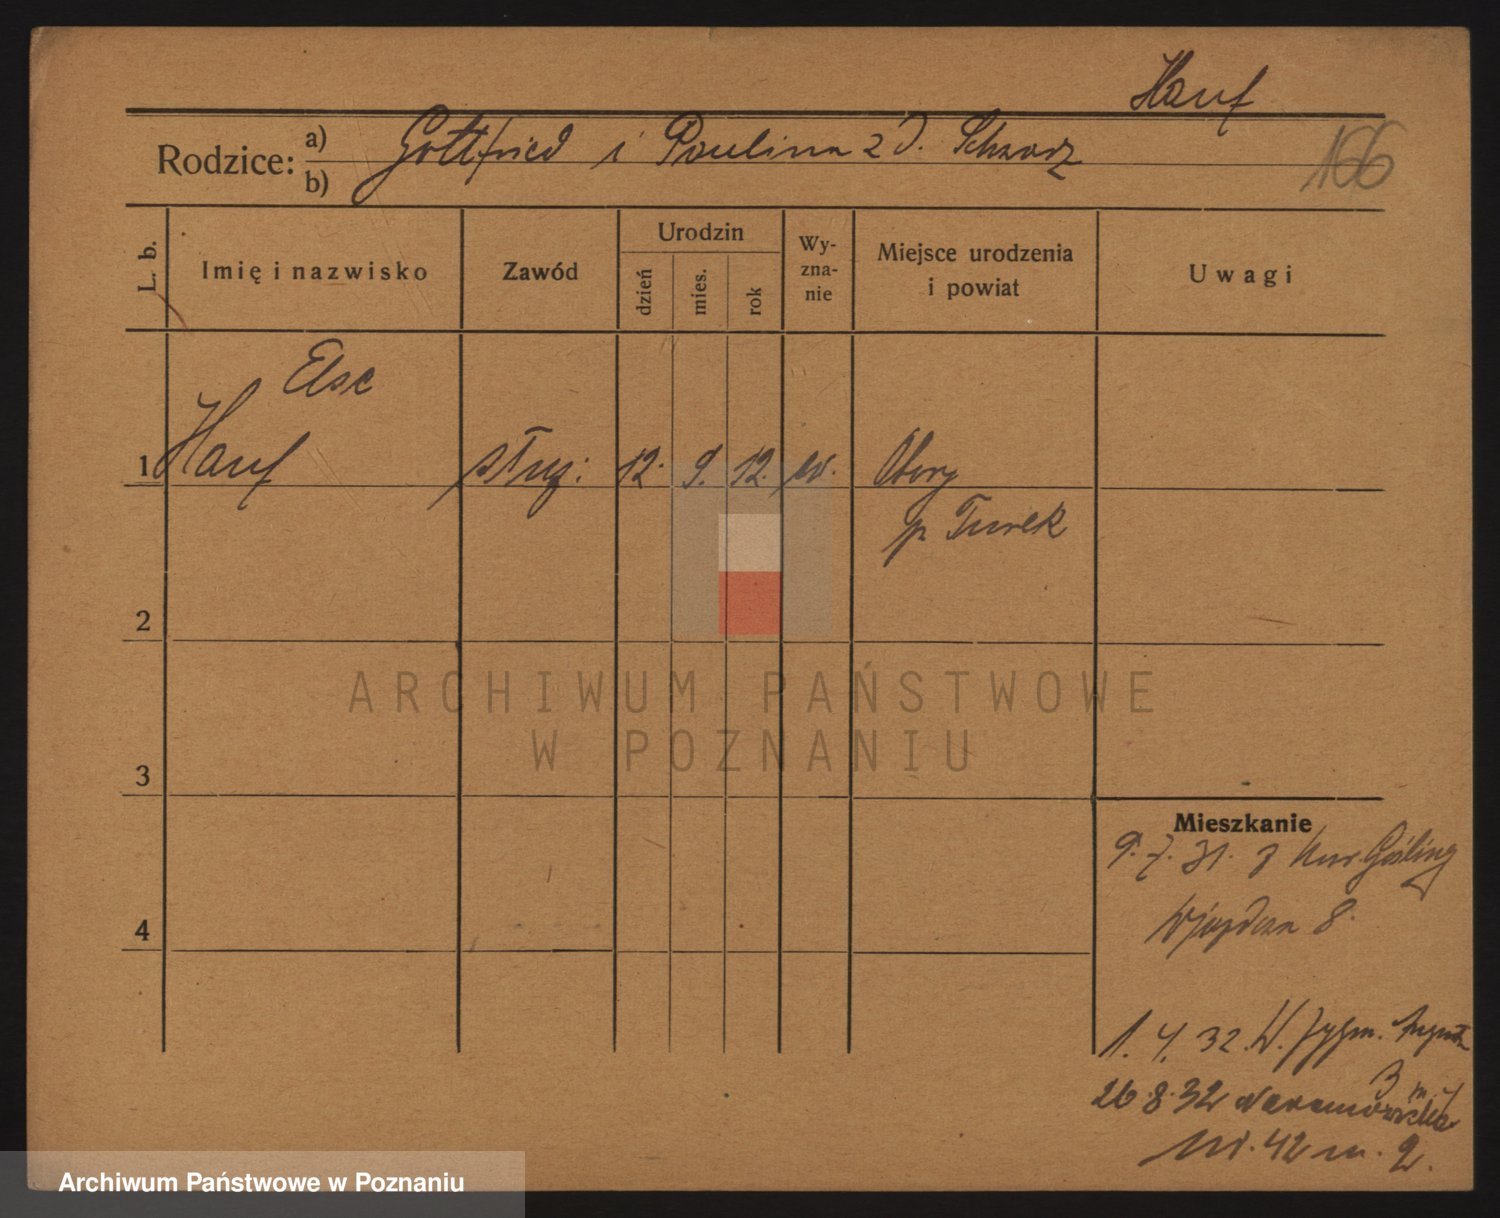 Hauf
Rodzice: a) Gottfried i Paulina z d. Schwarz
b)
166
L. b. Imię i nazwisko Zawód Urodzin dzień mies. rok Wy-zna-nie Miejsce urodzenia i powiat Uwagi
Else
1 Hauf służ: 12. 9. 12. ew. Obory
p. Turek
2
ARCHIWUM PAŃSTWOWE
W POZNANIU
3
Mieszkanie
9. 7. 31. z
Wjazdowa 8.
4
1. 4. 32. W. Zygm. Augusta
3 m
26.8.32 Naramowicka
Nr. 42 m. 2.
Archiwum Państwowe w Poznaniu